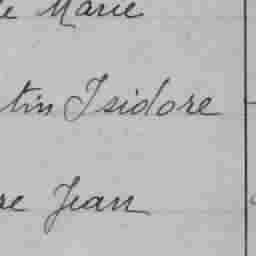 le Marie
tin Isidore
re Jean